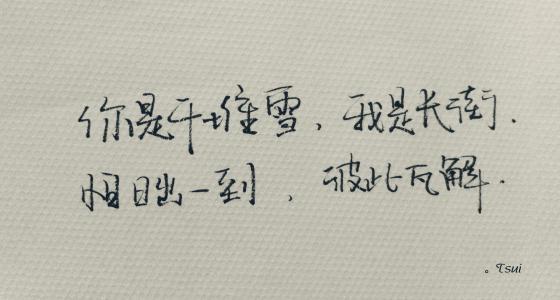 你是千堆雪，我是长街．
怕日出一到，彼此瓦解．
。Tsui